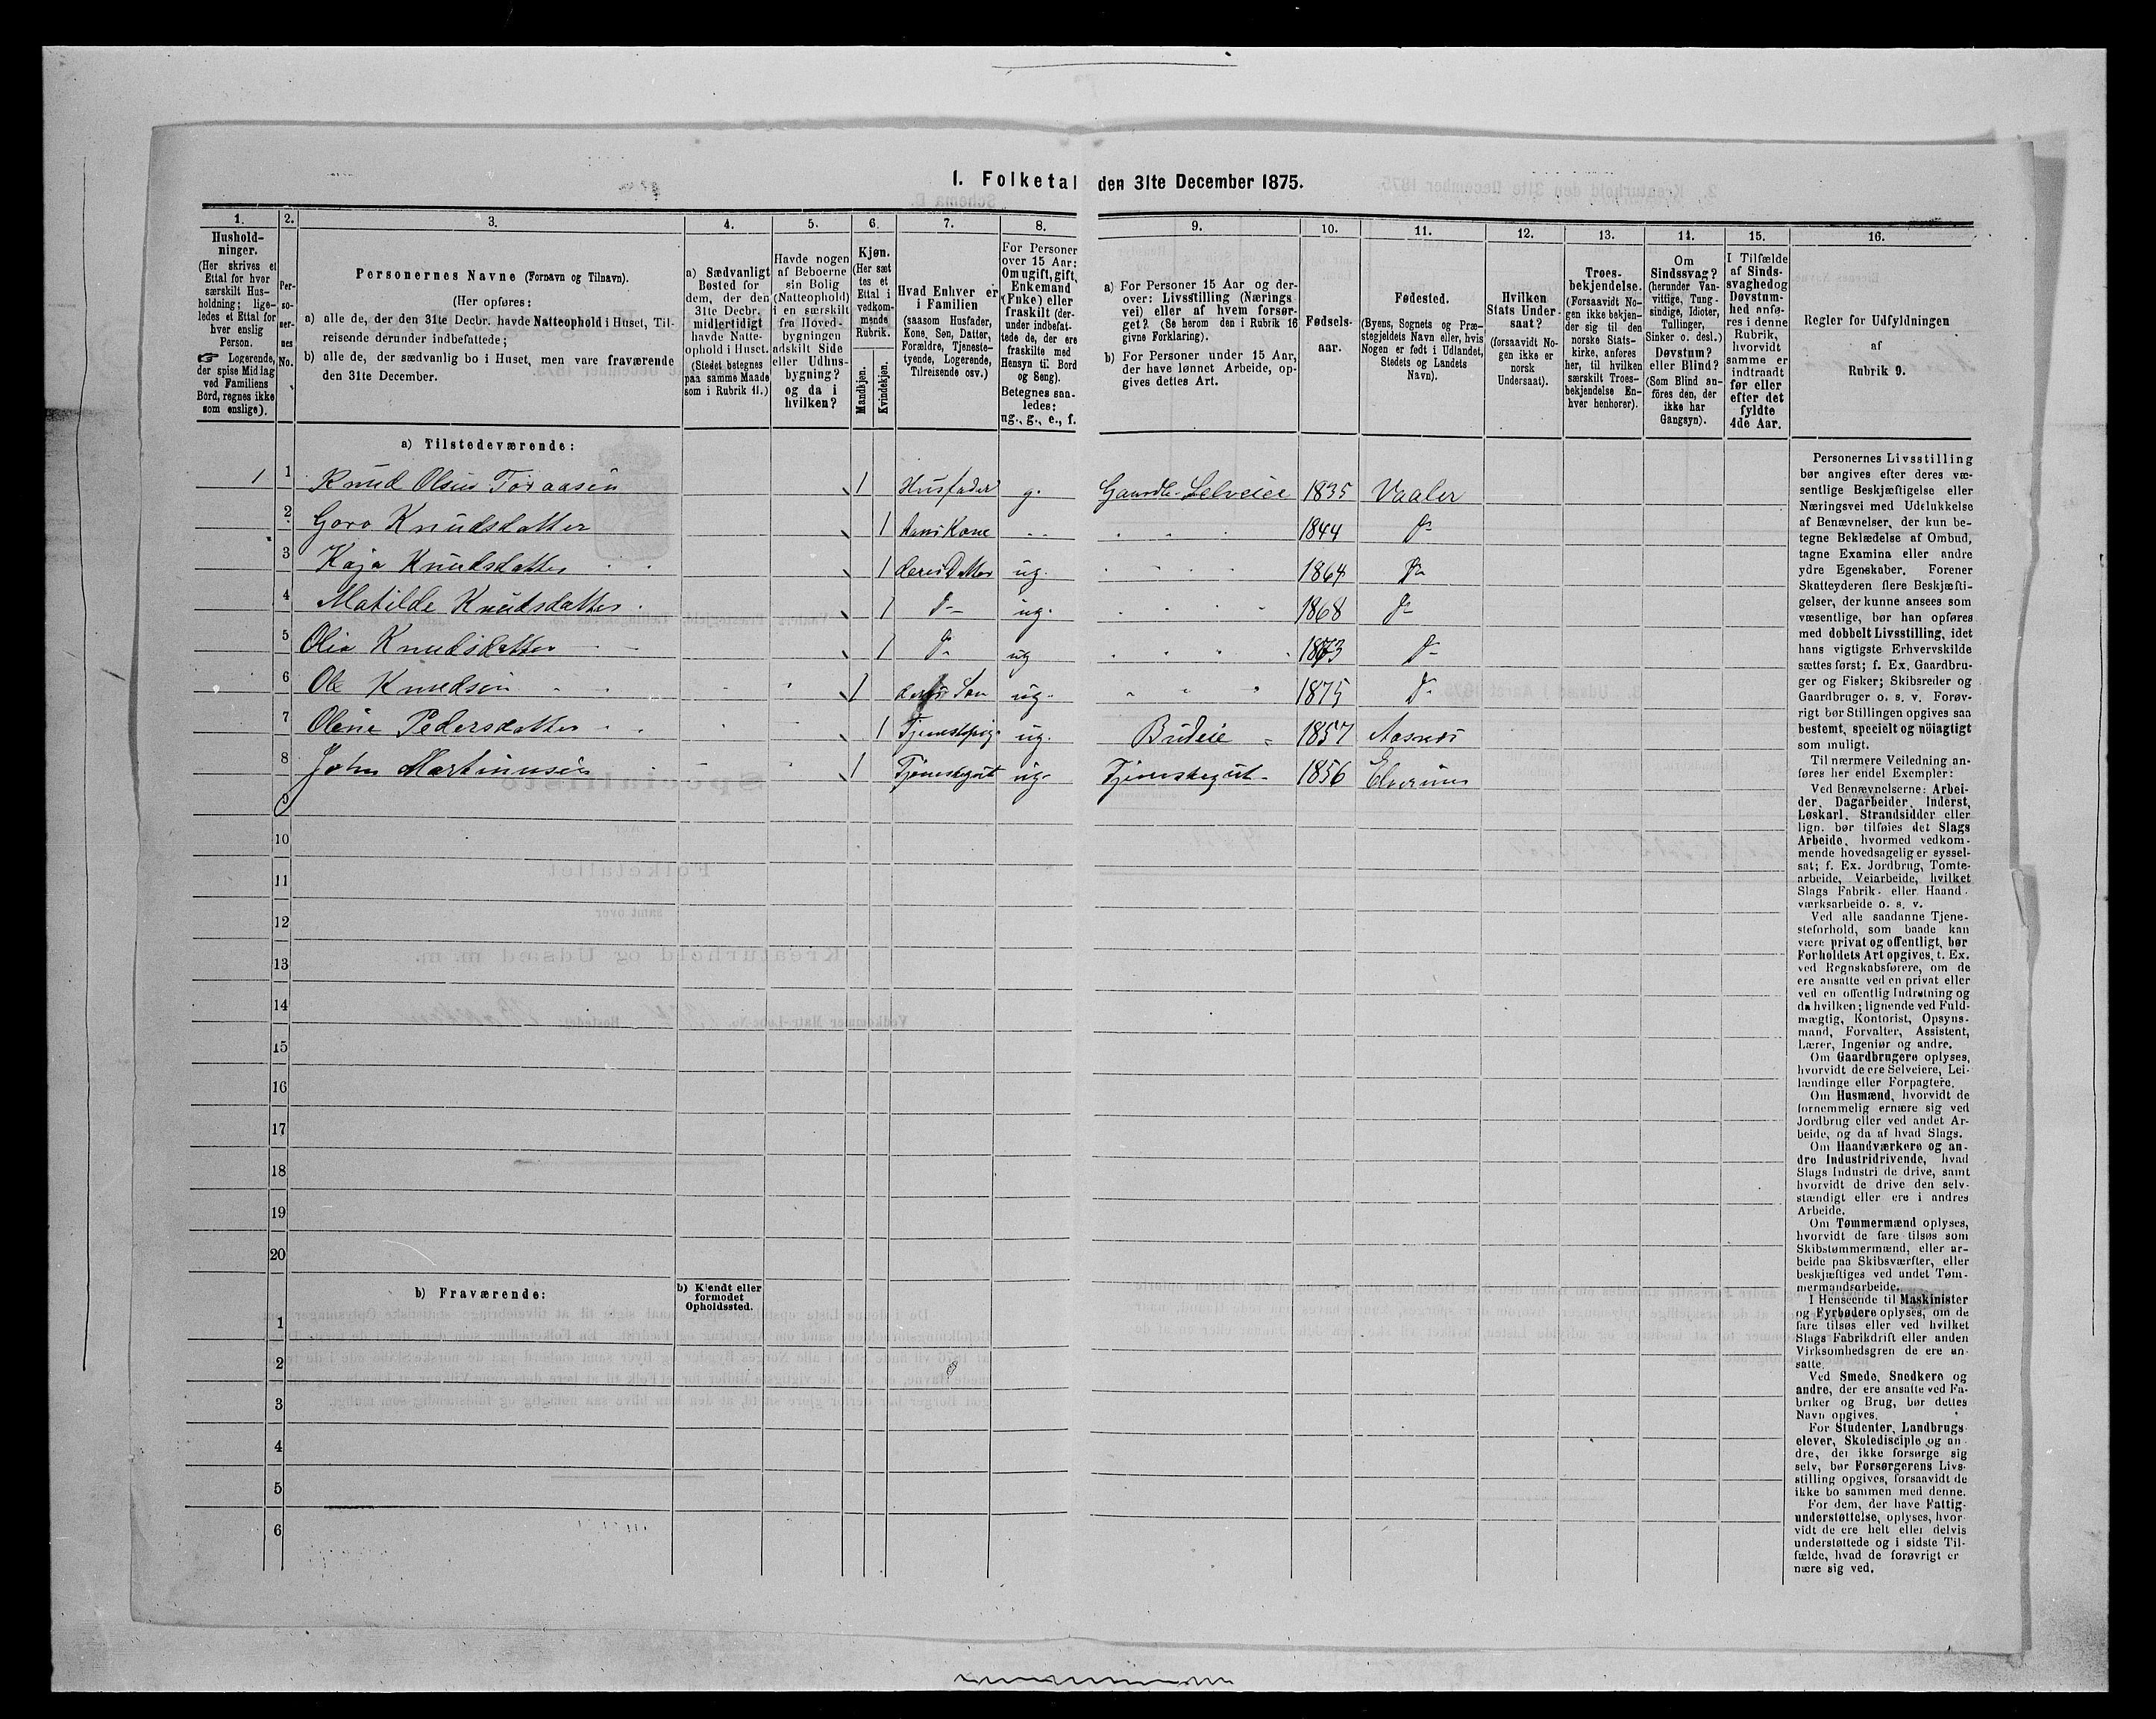 I. Folketal den 31te December 1875.
1. 2. 3. 4. 5. 6. 7. 8. 9. 10. 11. 12. 13. 14. 15. 16.
Hushold-
ninger.
(Her skrives et
Ettal for hver
særskilt Hus-
holdning; lige-
ledes et Ettal for
hver enslig
Person.
☞ Logerende,
der spise Middag
ved Familiens
Bord, regnes ikke
som enslige).
Per-
so-
ner-
nes
No.
Personernes Navne (Fornavn og Tilnavn).
(Her opføres:
a) alle de, der den 31te Decbr. havde Natteophold i Huset, Til-
reisende derunder indbefattede;
b) alle de, der sædvanlig bo i Huset, men vare fraværende
den 31te December.
a) Sædvanligt
Bosted for
dem, der den
31te Decbr.
midlertidigt
havde Natte-
ophold i Huset.
(Stedet betegnes
paa samme Maade
som i Rubrik 11.)
Havde nogen
af Beboerne
sin Bolig
(Natteophold)
i en særskilt
fra Hoved-
bygningen
adskilt Side
eller Udhus-
bygning?
og da i
hvilken?
Kjøn.
(Her sæt
tes et
Ettal i
vedkom-
mende
Rubrik.
Mandkjøn.
Kvindekjøn.
Hvad Enhver er
i Familien
(saasom Husfader,
Kone, Søn, Datter,
Forældre, Tjeneste-
tyende, Logerende,
Tilreisende osv.)
For Personer
over 15 Aar:
Om ugift, gift,
Enkemand
(Enke) eller
fraskilt (der-
under indbefat-
tede de, der ere
fraskilte med
Hensyn til Bord
og Seng).
Betegnes saa-
ledes:
ug., g., e., f.
a) For Personer 15 Aar og der-
over: Livsstilling (Nærings
vei) eller af hvem forsør-
get? (Se herom den i Rubrik 16
givne Forklaring).
b) For Personer under 15 Aar,
der have lønnet Arbeide, op-
gives dettes Art.
Fødsels-
aar.
Fødested.
(Byens, Sognets og Præ-
stegjeldets Navn eller, hvis
Nogen er født i Udlandet,
Stedets og Landets
Navn).
Hvilken
Stats Under-
saat?
(forsaavidt No-
gen ikke er
norsk
Undersaat).
Troes-
bekjendelse.
(Forsaavidt No-
gen ikke bekjen-
der sig til den
norske Stats-
kirke, anføres
her, til hvilken
særskilt Troes-
bekjendelse En-
hver henhører).
Om
Sindssvag?
(herunder Van-
vittige, Tung-
sindige, Idioter,
Tullinger,
Sinker o. desl.)
Døvstum?
eller Blind?
(Som Blind an-
føres den, der
ikke har
Gangsyn).
I Tilfælde
af Sinds-
svaghed og
Døvstum-
hed anfø-
res i denne
Rubrik,
hvorvidt
samme er
indtraadt
før eller
efter det
fyldte
4de Aar.
Regler for Udfyldningen
af
Rubrik 9.
a) Tilstedeværende:
1 1 Knud Olsen Toraasen 1 Husfader g. Gaardb. Selveier 1835 Vaaler
2 Goro Knudsdatter 1 hans Kone 1844 Do
3 Kaja Knudsdatter 1 deres Datter ug. 1864 Do
4 Matilde Knudsdatter 1 Do ug. 1868 Do
5 Olia Knudsdatter 1 Do ug 1873 Do
6 Ole Knudsen 1 deres Søn ug. 1875 Do
7 Oline Pedersdatter 1 Tjenestepig ug. Budeie 1857 Aasnæs
8 John Martinusen 1 Tjenestegut ug. Tjenestegut 1856 Elverum
9
10
11
12
13
14
15
16
17
18
19
20
b) Fraværende:
b) Kjendt eller
formodet
Opholdssted.
1
2
3
4
5
6
Personernes Livsstilling
bør angives efter deres væ-
sentlige Beskjæftigelse eller
Næringsvei med Udelukkelse
af Benævnelser, der kun be-
tegne Beklædelse af Ombud,
tagne Examina eller andre
ydre Egenskaber. Forener
Skatteyderen flere Beskjæfti-
gelser, der kunne ansees som
væsentlige, bør han opføres
med dobbelt Livsstilling, idet
hans vigtigste Erhvervskilde
sættes først; f. Ex. Gaardbru-
ger og Fisker; Skibsreder og
Gaardbruger o. s. v. Forøv-
rigt bør Stillingen opgives saa
bestemt, specielt og nöiagtigt
som muligt.
Til nærmere Veiledning an-
føres her endel Exempler:
Ved Benævnelserne: Arbei-
der, Dagarbeider, Inderst,
Løskarl, Strandsidder eller
lign. bør tilføies det Slags
Arbeide, hvormed vedkom-
mende hovedsagelig er syssel-
sat; f. Ex. Jordbrug, Tomte-
arbeide, Veiarbeide, hvilket
Slags Fabrik- eller Haand-
værksarbeide o. s. v.
Ved alle saadanne Tjene-
steforhold, som baade kan
være privat og offentligt, bør
Forholdets Art opgives, t. Ex.
ved Regnskabsførere, om de
ere ansatte ved en privat eller
ved en offentlig Indretning og
da hvilken; lignende ved Fuld-
mægtig, Kontorist, Opsyns-
mand, Forvalter, Assistent,
Lærer, Ingeniør og andre.
Om Gaardbrugere oplyses,
hvorvidt de ere Selveiere, Lei-
lændinge eller Forpagtere.
Om Husmænd, hvorvidt de
fornemmelig ernære sig ved
Jordbrug eller ved andet Ar-
beide, og da af hvad Slags.
Om Haandværkere og an-
dre Industridrivende, hvad
Slags Industri de drive, samt
hvorvidt de drive den selv-
stændigt eller ere i andres
Arbeide.
Om Tømmermænd oplyses,
hvorvidt de fare tilsøs som
Skibstømmermænd, eller ar-
beide paa Skibsværfter, eller
beskjæftiges ved andet Tøm-
mermandsarbeide.
I Henseende til Maskinister
og Fyrbødere oplyses, om de
fare tilsøs eller ved hvilket
Slags Fabrikdrift eller anden
Virksomhedsgren de ere an-
satte.
Ved Smede, Snedkere og
andre, der ere ansatte ved Fa-
briker og Brug, bør dettes
Navn opgives.
For Studenter, Landbrugs-
elever, Skoledisciple og an-
dre, der ikke forsørge sig
selv, bør Forsørgerens Livs-
stilling opgives, forsaavidt de
ikke bo sammen med denne.
For dem, der have Fattig-
understøttelse, oplyses, hvor-
vidt de ere helt eller delvis
understøttede og i sidste Til-
fælde, hvad de forøvrigt er
nære sig ved.